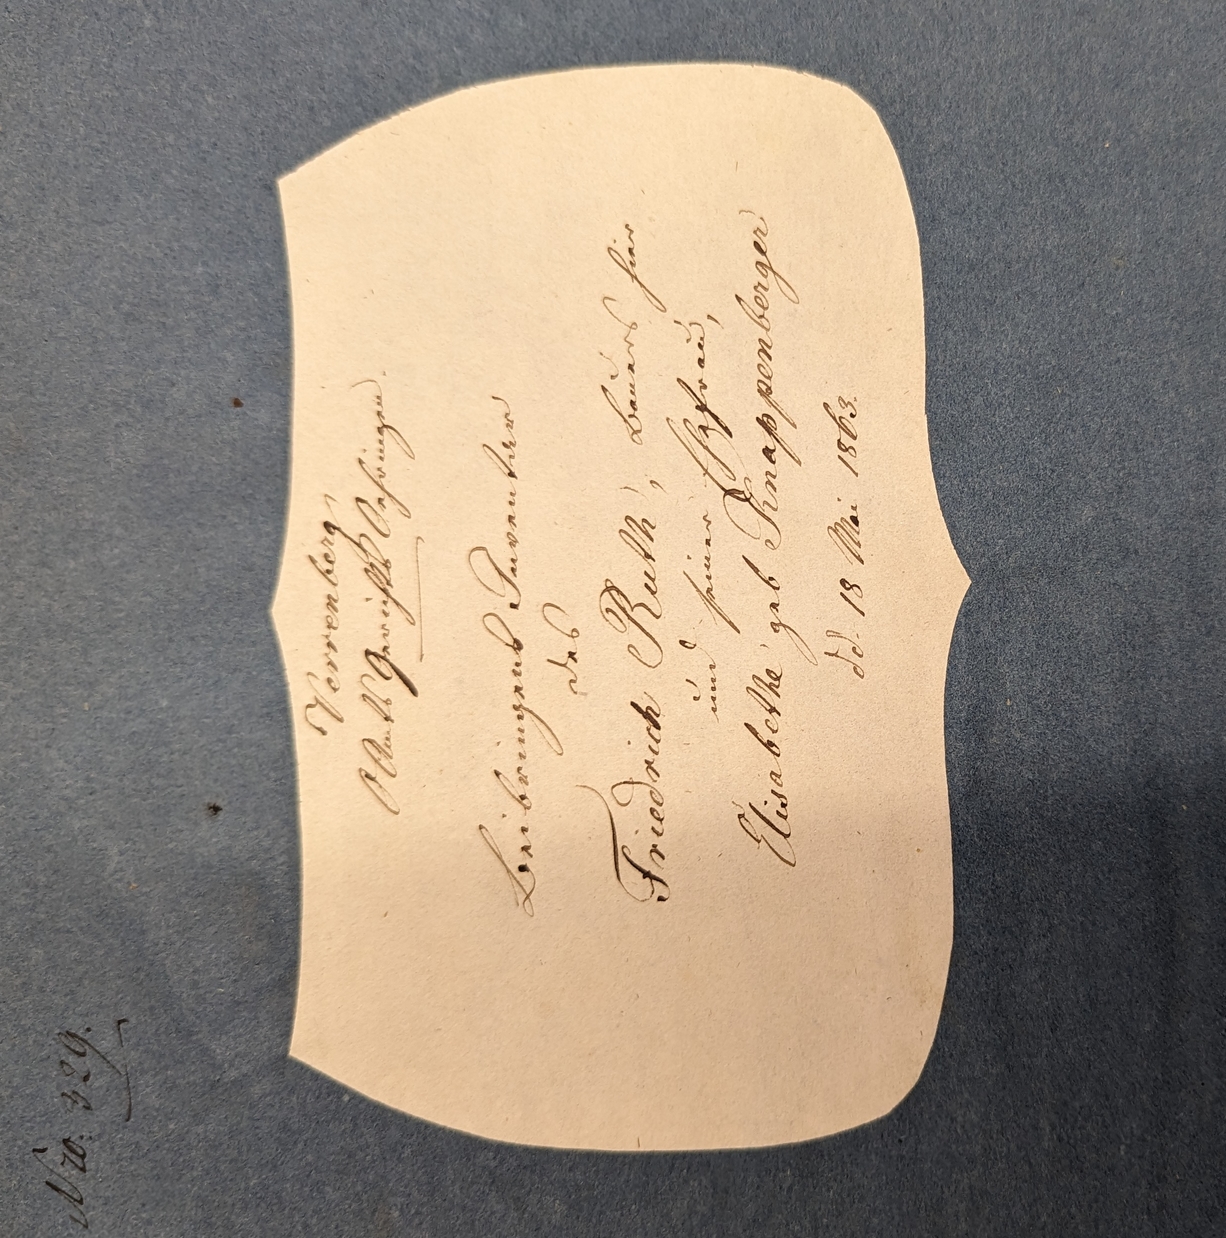 Nro. 329.
Verrenberg
OAmts Gerichts Oehringen.
Beibringens Inventur
des
Friedrich Ruth, Bauers hier
und seiner Ehefrau,
Elisabethe geb Knappenberger
dd. 18 Mai 1863.